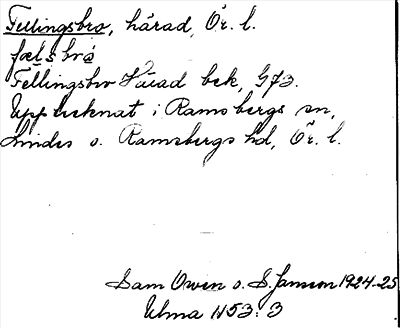 Fellingsbro, härad, Ör. l.
fæl̥s brɷ̀
Fellingsbro Härad bek, G73.
Upptecknat i Ramsbergs sn,
Lindes o. Ramsbergs hd, Ör. l.
Sam Owen o. S. Janson 1924-25
Ulma 1153:3